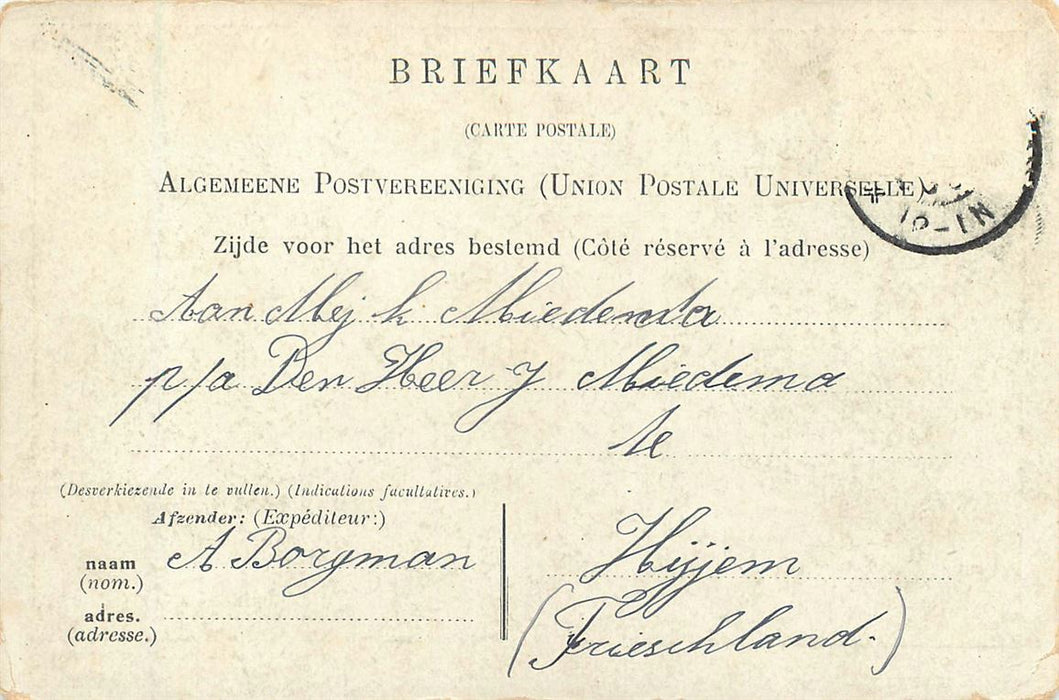 BRIEFKAART
(CARTE POSTALE)
ALGEMEENE POSTVEREENIGING (UNION POSTALE UNIVERSELLE)
Zijde voor het adres bestemd (Côté réservé à l'adresse)
Aan Mej k Miedema
p/a Den Heer J Miedema
te
(Desverkiezende in te vullen.) (Indications facultatives.)
Afzender: (Expéditeur:)
naam A Borgman
(nom.)
adres.
(adresse.)
Hijjem
(Frieschland.)